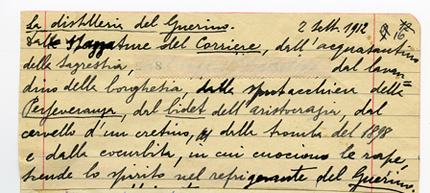 La distilleria del Guerino. 2 Sett. 1912 72 16
Dalle spazzature del Corriere, dall'acquasantino
della Sagrestia, dal lavan=
drino della borghesia, dalla sputacchiera della
Perseveranza, dal bidet dell'aristocrazia, dal
cervello d'un cretino, dalla tromba del 1898
e dalla cocurbita, in cui cuociono le rape,
scende lo spirito nel refrigerante del Guerino,